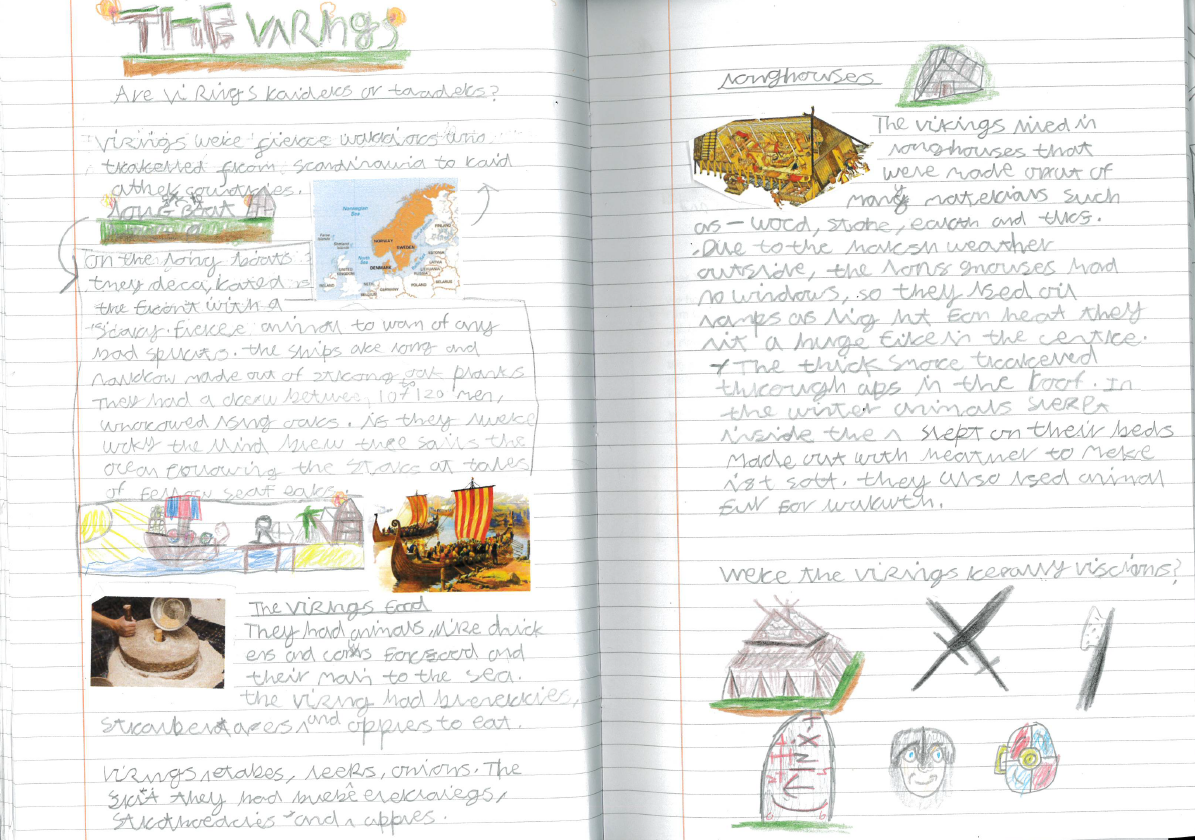 THE VIKINGS
Are vikings Raiders or traders?
vikings were fierce warriors who
travelled from scandinavia to raid
other countries.
long boat
Norwegian Sea
FINLAND
NORWAY
SWEDEN
North Sea
DENMARK
ESTONIA
LATVIA
RUSSIA
UNITED
GERMANY
POLAND
BELARUS
on the long boats
they decorated
the front with a
scary fierce animal to warn of any
bad spirits. the ships are long and
narrow made out of strong oak planks
They had a crew between 10 to 120 men,
rowed using oars. is they were
the wind blew sails the
ocean following the stars at
of
The vikings food
They had animals like chick
ens and cows for food and
their main to the sea.
the viking had
and apples to eat.
vikings leeks, onions. The
they had
and apples.
longhouses
The vikings lived in
longhouses that
were made oout of
many materials such
as – wood, stone, earth and
Due to the harsh weather
outside, the long houses had
no windows, so they used oil
lamps as lig ht For heat they
lit a huge fire in the centre.
The thick smoke travelled
through in the roof. In
the winter animals sleept
inside the slept on their beds
made out with heather to make
soft. they also used animal
fur for warmth.
were the vikings really viscious?